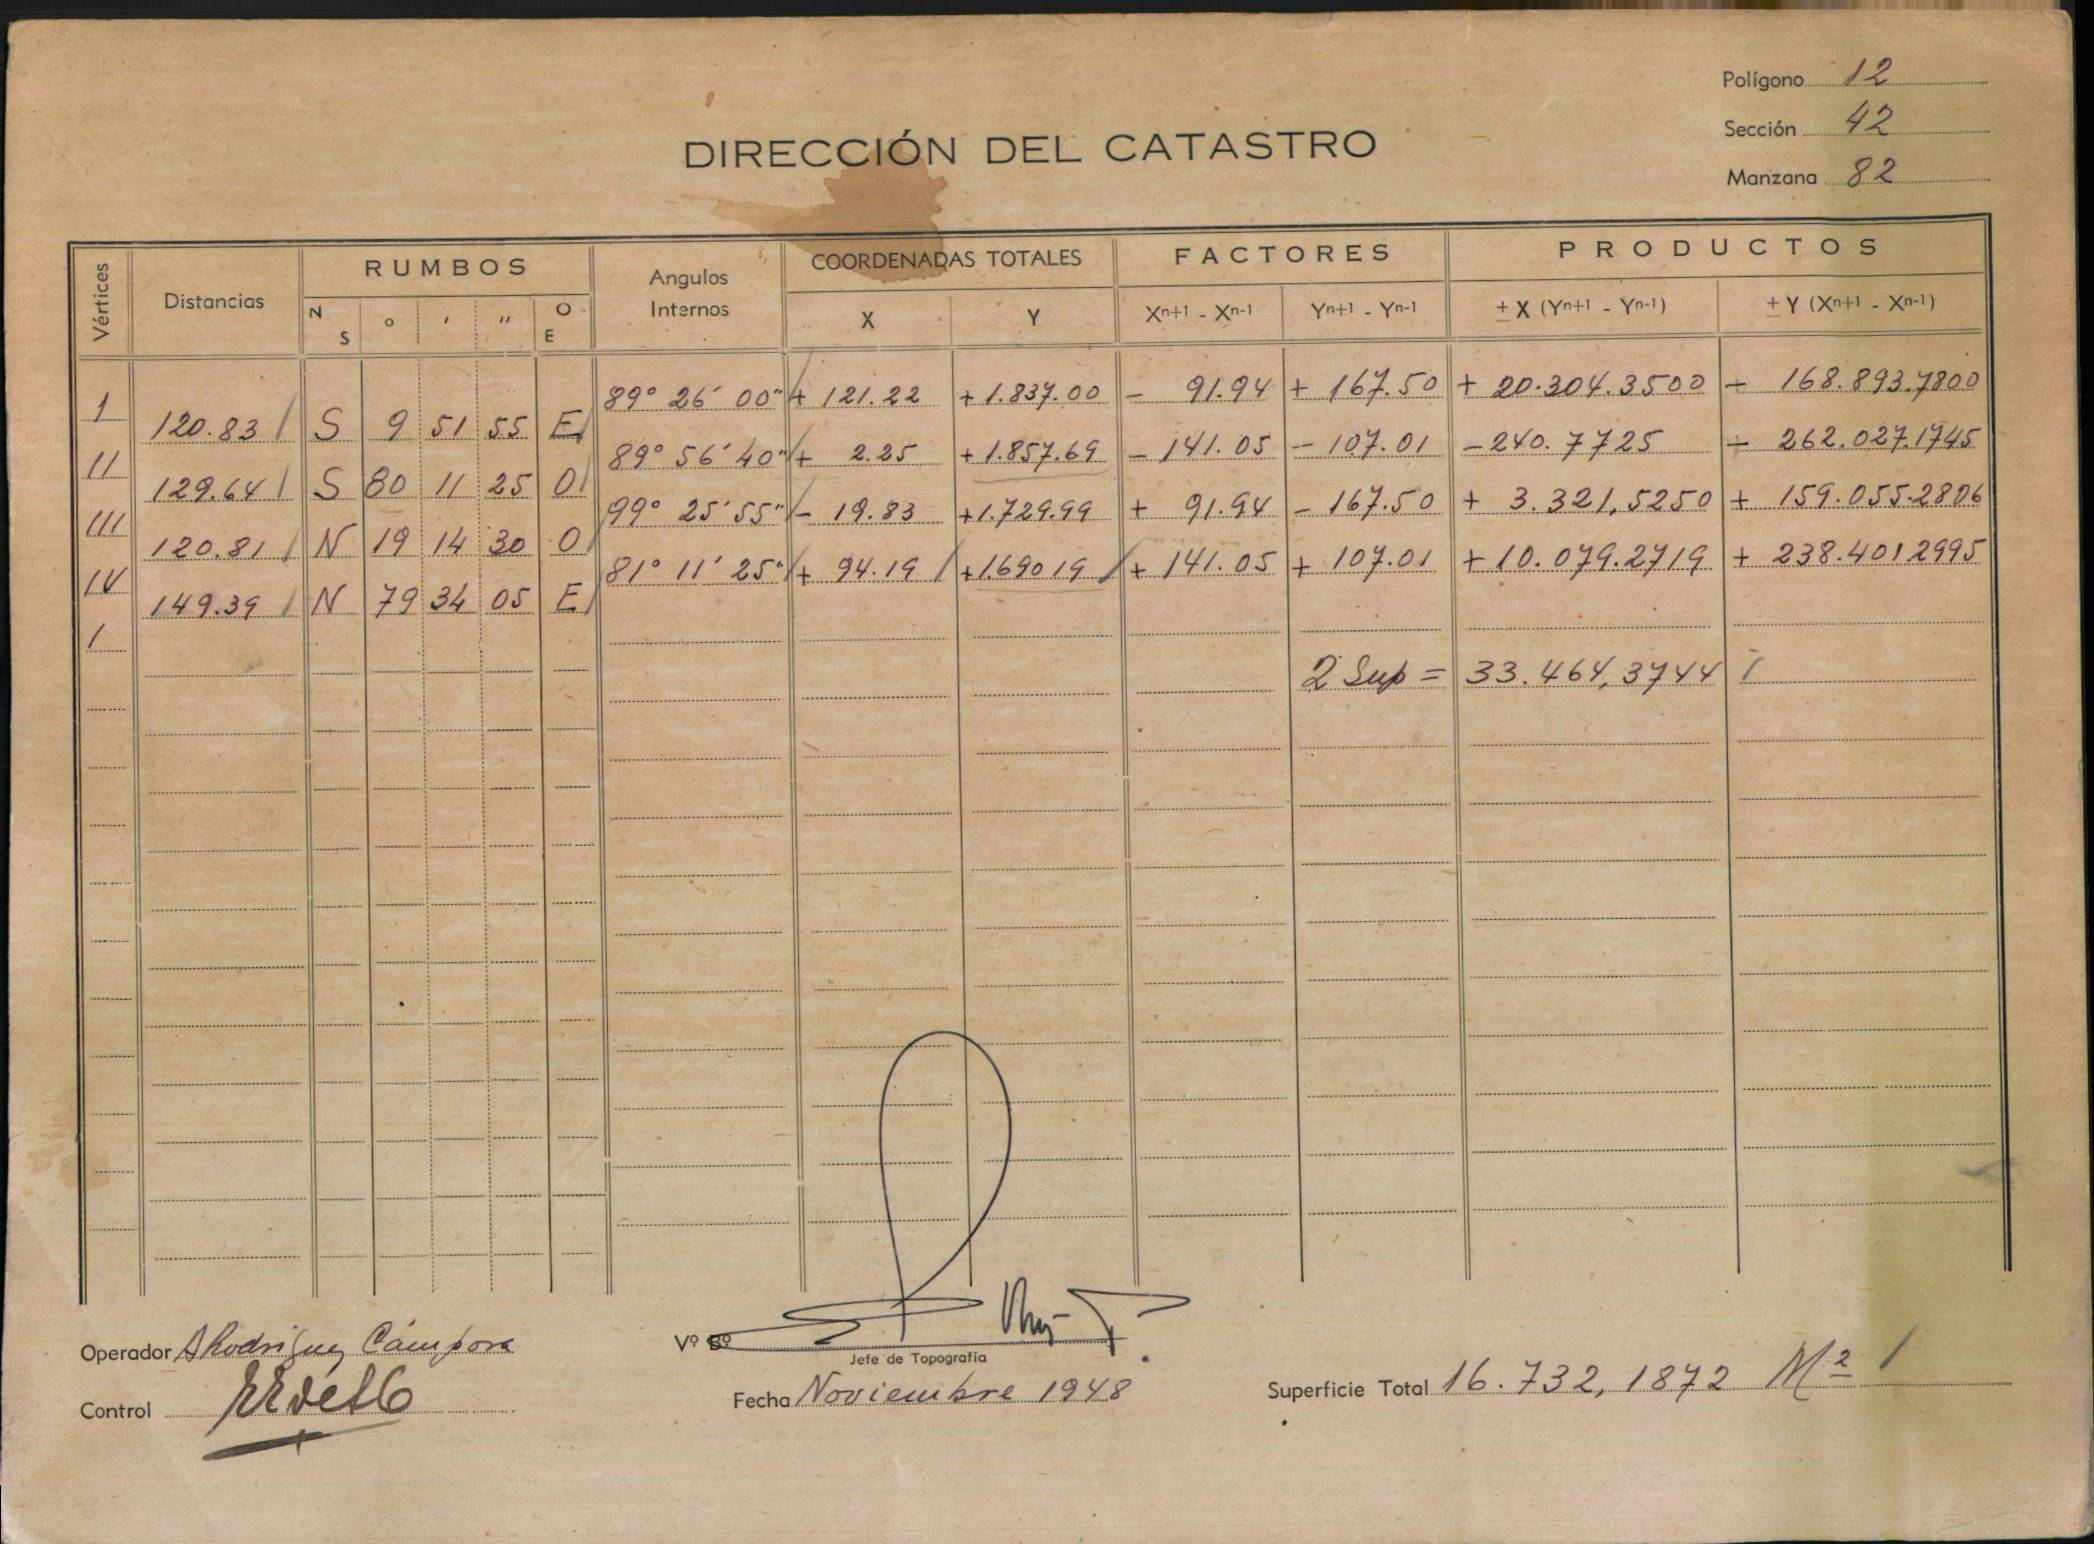 Polígono 12
Sección 42
Manzana 82
DIRECCIÓN DEL CATASTRO
Vértices Distancias RUMBOS Angulos Internos COORDENADAS TOTALES FACTORES PRODUCTOS
N S ° ' " O E X Y Xn+1 - Xn-1 Yn+1 - Yn-1 ± X (Yn+1 - Yn-1) ± Y (Xn+1 - Xn-1)
I 89° 26' 00" + 121.22 + 1.837.00 - 91.94 + 167.50 + 20.304.3500 - 168.893.7800
120.83 S 9 51 55 E
II 89° 56' 40" + 2.25 + 1.857.69 - 141.05 - 107.01 - 240.7725 - 262.027.1745
129.64 S 80 11 25 O
III 99° 25' 55" - 19.83 + 1.729.99 + 91.94 - 167.50 + 3.321,5250 + 159.055.2806
120.81 N 19 14 30 O
IV 81° 11' 25" + 94.19 + 1.690 19 + 141.05 + 107.01 + 10.079.2719 + 238.401 2995
149.39 N 79 34 05 E
I
2 Sup = 33.464,3744
Operador A Rodriguez Cámpora
Vº Bº
Jefe de Topografía
Control
Fecha Noviembre 1948
Superficie Total 16.732,1872 M2